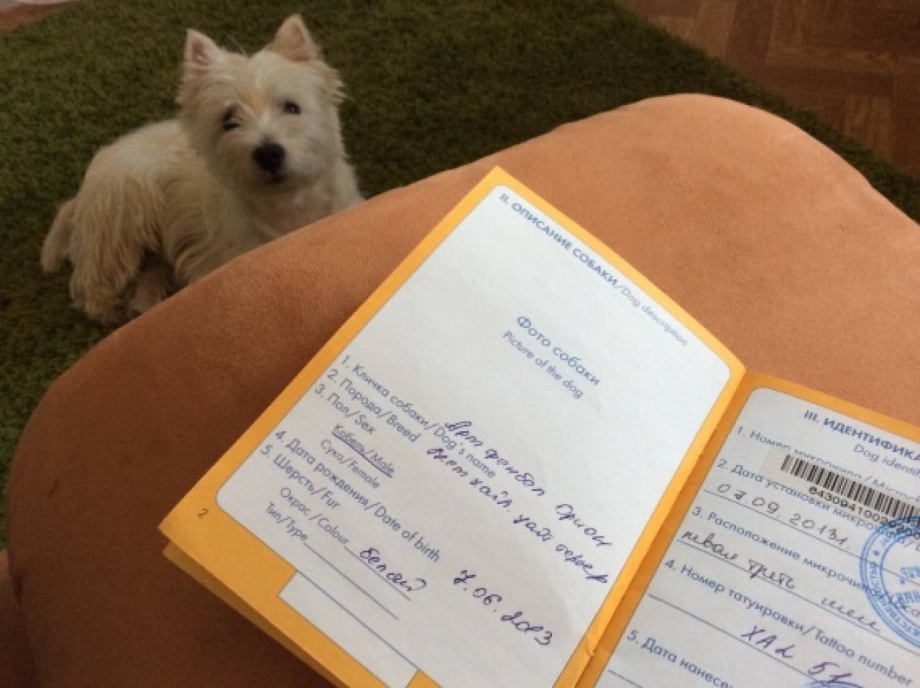 II. ОПИСАНИЕ СОБАКИ/Dog description
Фото собаки
Picture of the dog
1. Кличка собаки/Dog's name Орион
2. Порода/Breed вест хайл. уайт терьер
3. Пол/Sex
Кобель/Male
Сука/Female
4. Дата рождения/Date of birth 7.06.2013
5. Шерсть/Fur
Окрос/Colour белый
Тип/Type
2
III. ИДЕНТИФИКА
Dog identi
1. Номер
2. Дата установки микроч
07.09.2013г.
3. Расположение микрочи
левая треть шеи
4. Номер татуировки/Tattoo number
5. Дата нанесе